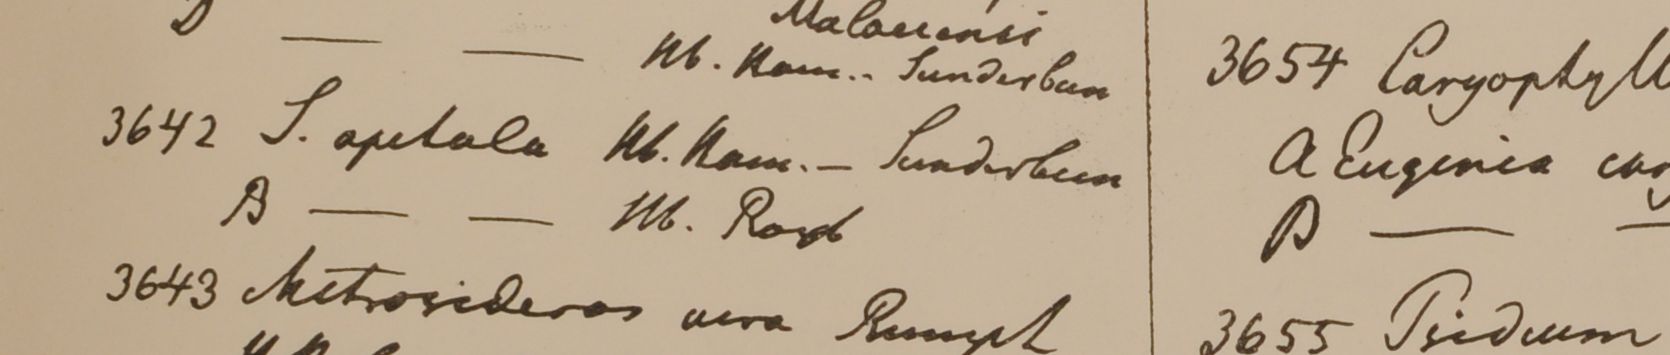 D — — Malaccensi
Hb. Ham. - Sunderbun
3642 S. apetala Hb. Ham. - Sunderbun
B — — Hb. Roxb
3643 Metrosideros vera Rumph
3654 Caryophyll
A Eugenia
B — —
3655 Psidium